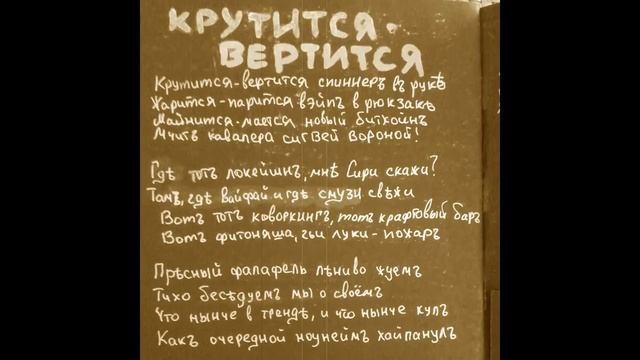 КРУТИТСЯ-
ВЕРТИТСЯ
Крутится-вертится спиннеръ въ рукѣ
Жарится-парится вэйпъ в рюкзакѣ
Майнится-мается новый биткойнъ
Мчитъ кавалера сигвей вороной!
Гдѣ тотъ локейшнъ, мнѣ Сири скажи?
Тамъ, гдѣ вайфай и гдѣ смузи свѣжи
Вотъ тотъ коворкингъ, тотъ крафтовый баръ
Вотъ фитоняша, чьи луки - пожаръ
Прѣсный фалафель лѣниво жуемъ
Тихо бесѣдуем мы о своёмъ
Что нынче в трендѣ, и что нынче кулъ
Какъ очередной ноунеймъ хайпанулъ